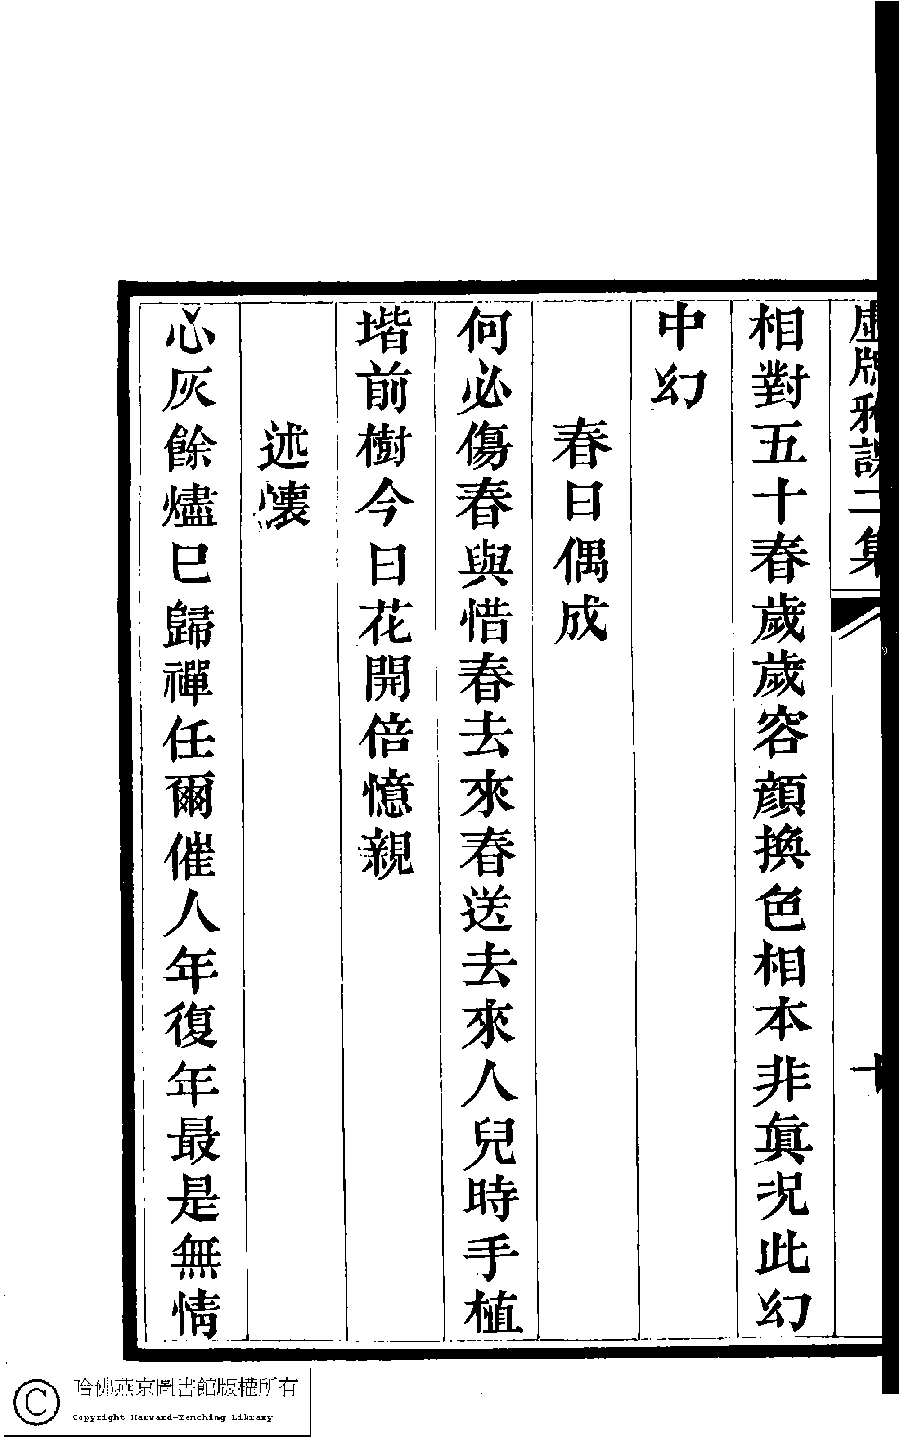 虛牕雅課二集
十
相對五十春歲歲容顔換色相本非眞況此幻
中幻
春日偶成
何必傷春與惜春去來春送去來人兒時手植
堦前樹今日花開倍憶親
述懷
心灰餘燼巳歸禪任爾催人年復年最是無情
哈佛燕京圖書館版權所有
Copyright Harvard-Yenching Library